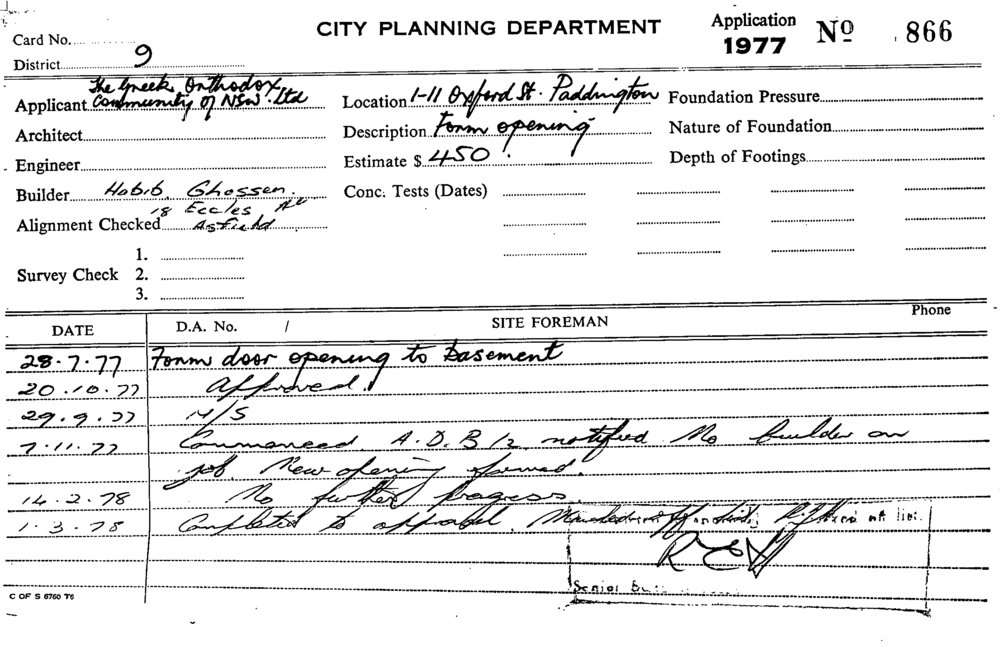 CITY PLANNING DEPARTMENT
Application
1977 Nº 866
Card No.
District 9
Applicant The Greek Orthodox
Community of NSW. Ltd
Location 1-11 Oxford St. Paddington
Foundation Pressure
Architect
Description Form opening
Nature of Foundation
Engineer
Estimate $ 450
Depth of Footings
Builder Habib Ghossen.
18 Eccles Av
Conc. Tests (Dates)
Alignment Checked Asfield
Survey Check
1.
2.
3.
Phone
DATE D.A. No. / SITE FOREMAN
28.7.77 Form door opening to basement
20.10.77 Approved.
29.9.77 N/S
7.11.77 Commenced A.D.B /2 notified No builder on
job. New opening formed.
14.2.78 No further progress.
1.3.78 Completed to approval.
Senior
C OF S 6760 T6